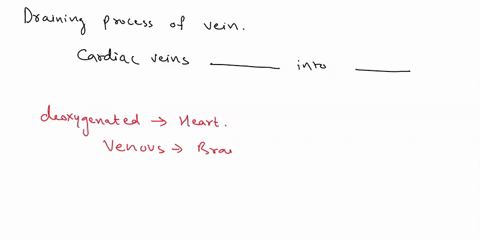 Draining process of vein.
Cardiac veins ______ into ______
deoxygenated → Heart.
Venous →